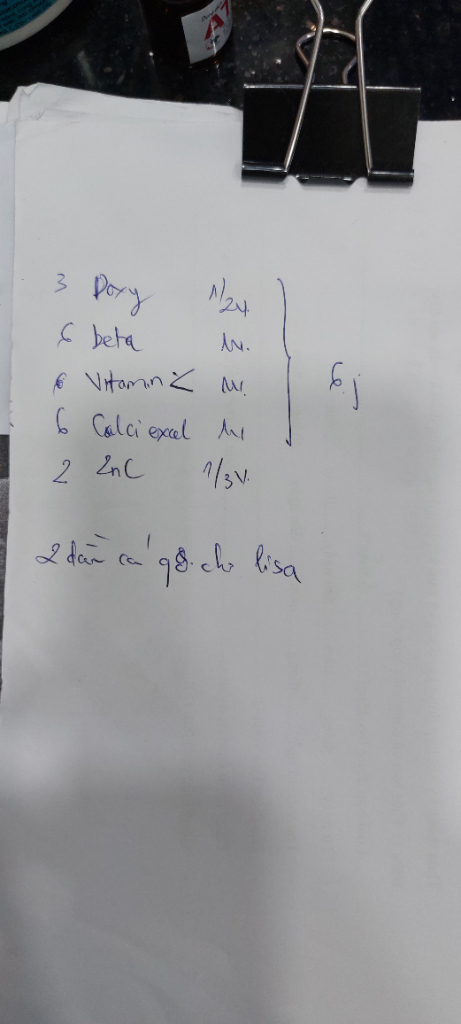 A
3 Doxy 1/2v.
6 beta 1v.
6 Vitamin C 1v.
6 Calci excel 1v
2 ZnC 1/3v.
6 j
2 dầu cá q8. cho lisa